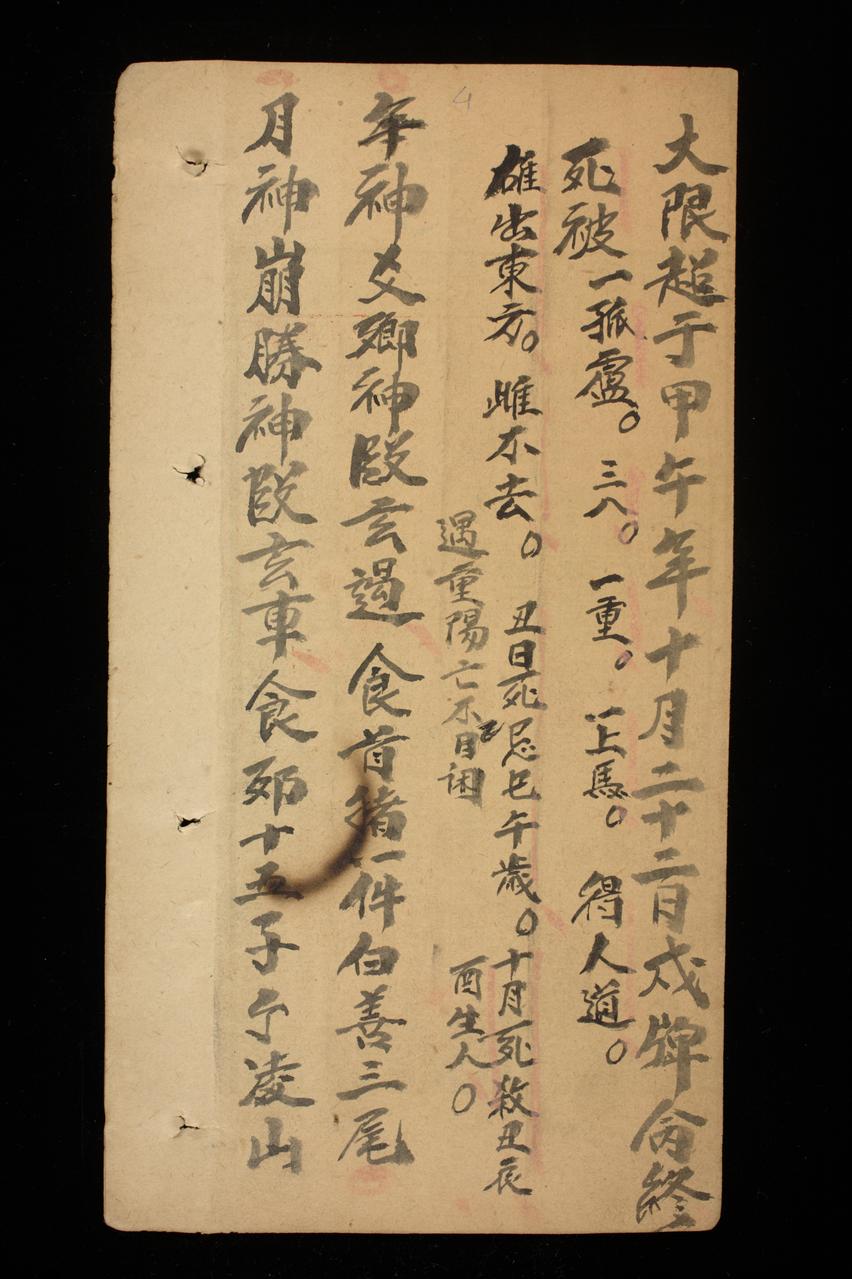 大限超于甲午年十月二十二日戍牌命終
死被一孤虛。三八。一重。一上馬。得人道。
雄出東方。雌不去。丑日死忌巳午歲。十月死殺丑辰
遇重陽亡不自困
酉生人。
年神 鄉神 玄 食首猪一件白善三尾
月神崩勝神 玄車食 十五子 凌山
4